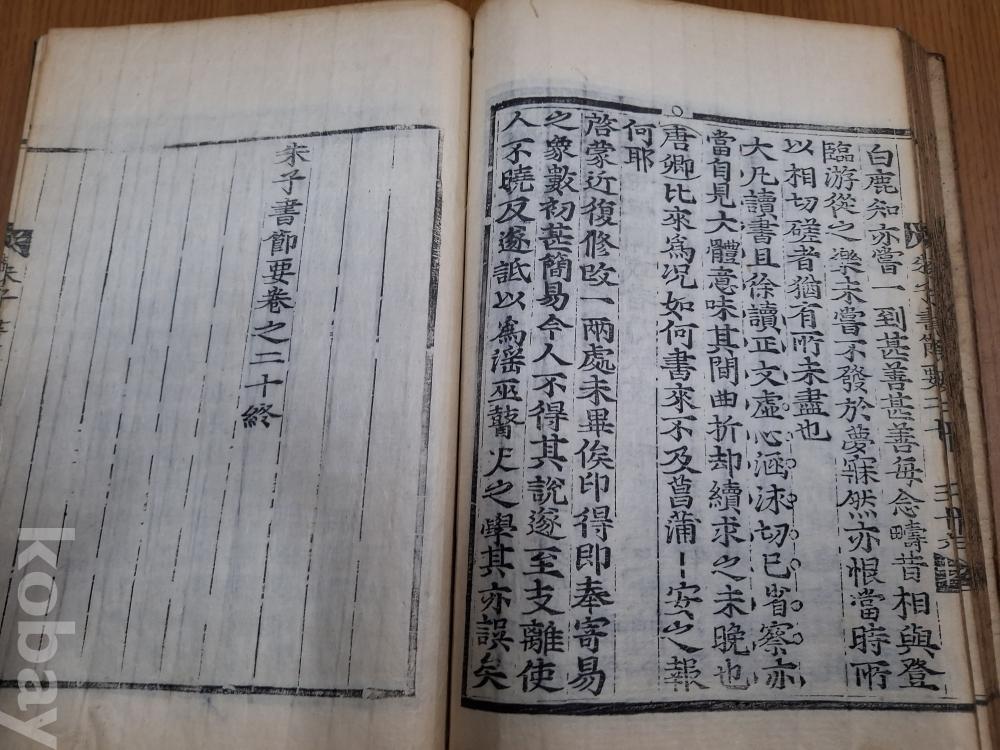 白鹿知亦嘗一到甚善甚善每念疇昔相與登
臨游從之樂未嘗不發於夢寐然亦恨當時所
以相切磋者猶有所未盡也
大凡讀書且徐讀正文虛心涵泳切己省察亦
當自見大體意味其間曲折却續求之未晚也
○唐卿比來爲况如何書來不及菖蒲一安之報
何耶
啓蒙近復修改一兩處未畢俟印得即奉寄易
之象數初甚簡易今人不得其說遂至支離使
人不曉反遂詆以爲淫巫瞽史之學其亦誤矣
朱子書節要卷之二十終
kobay